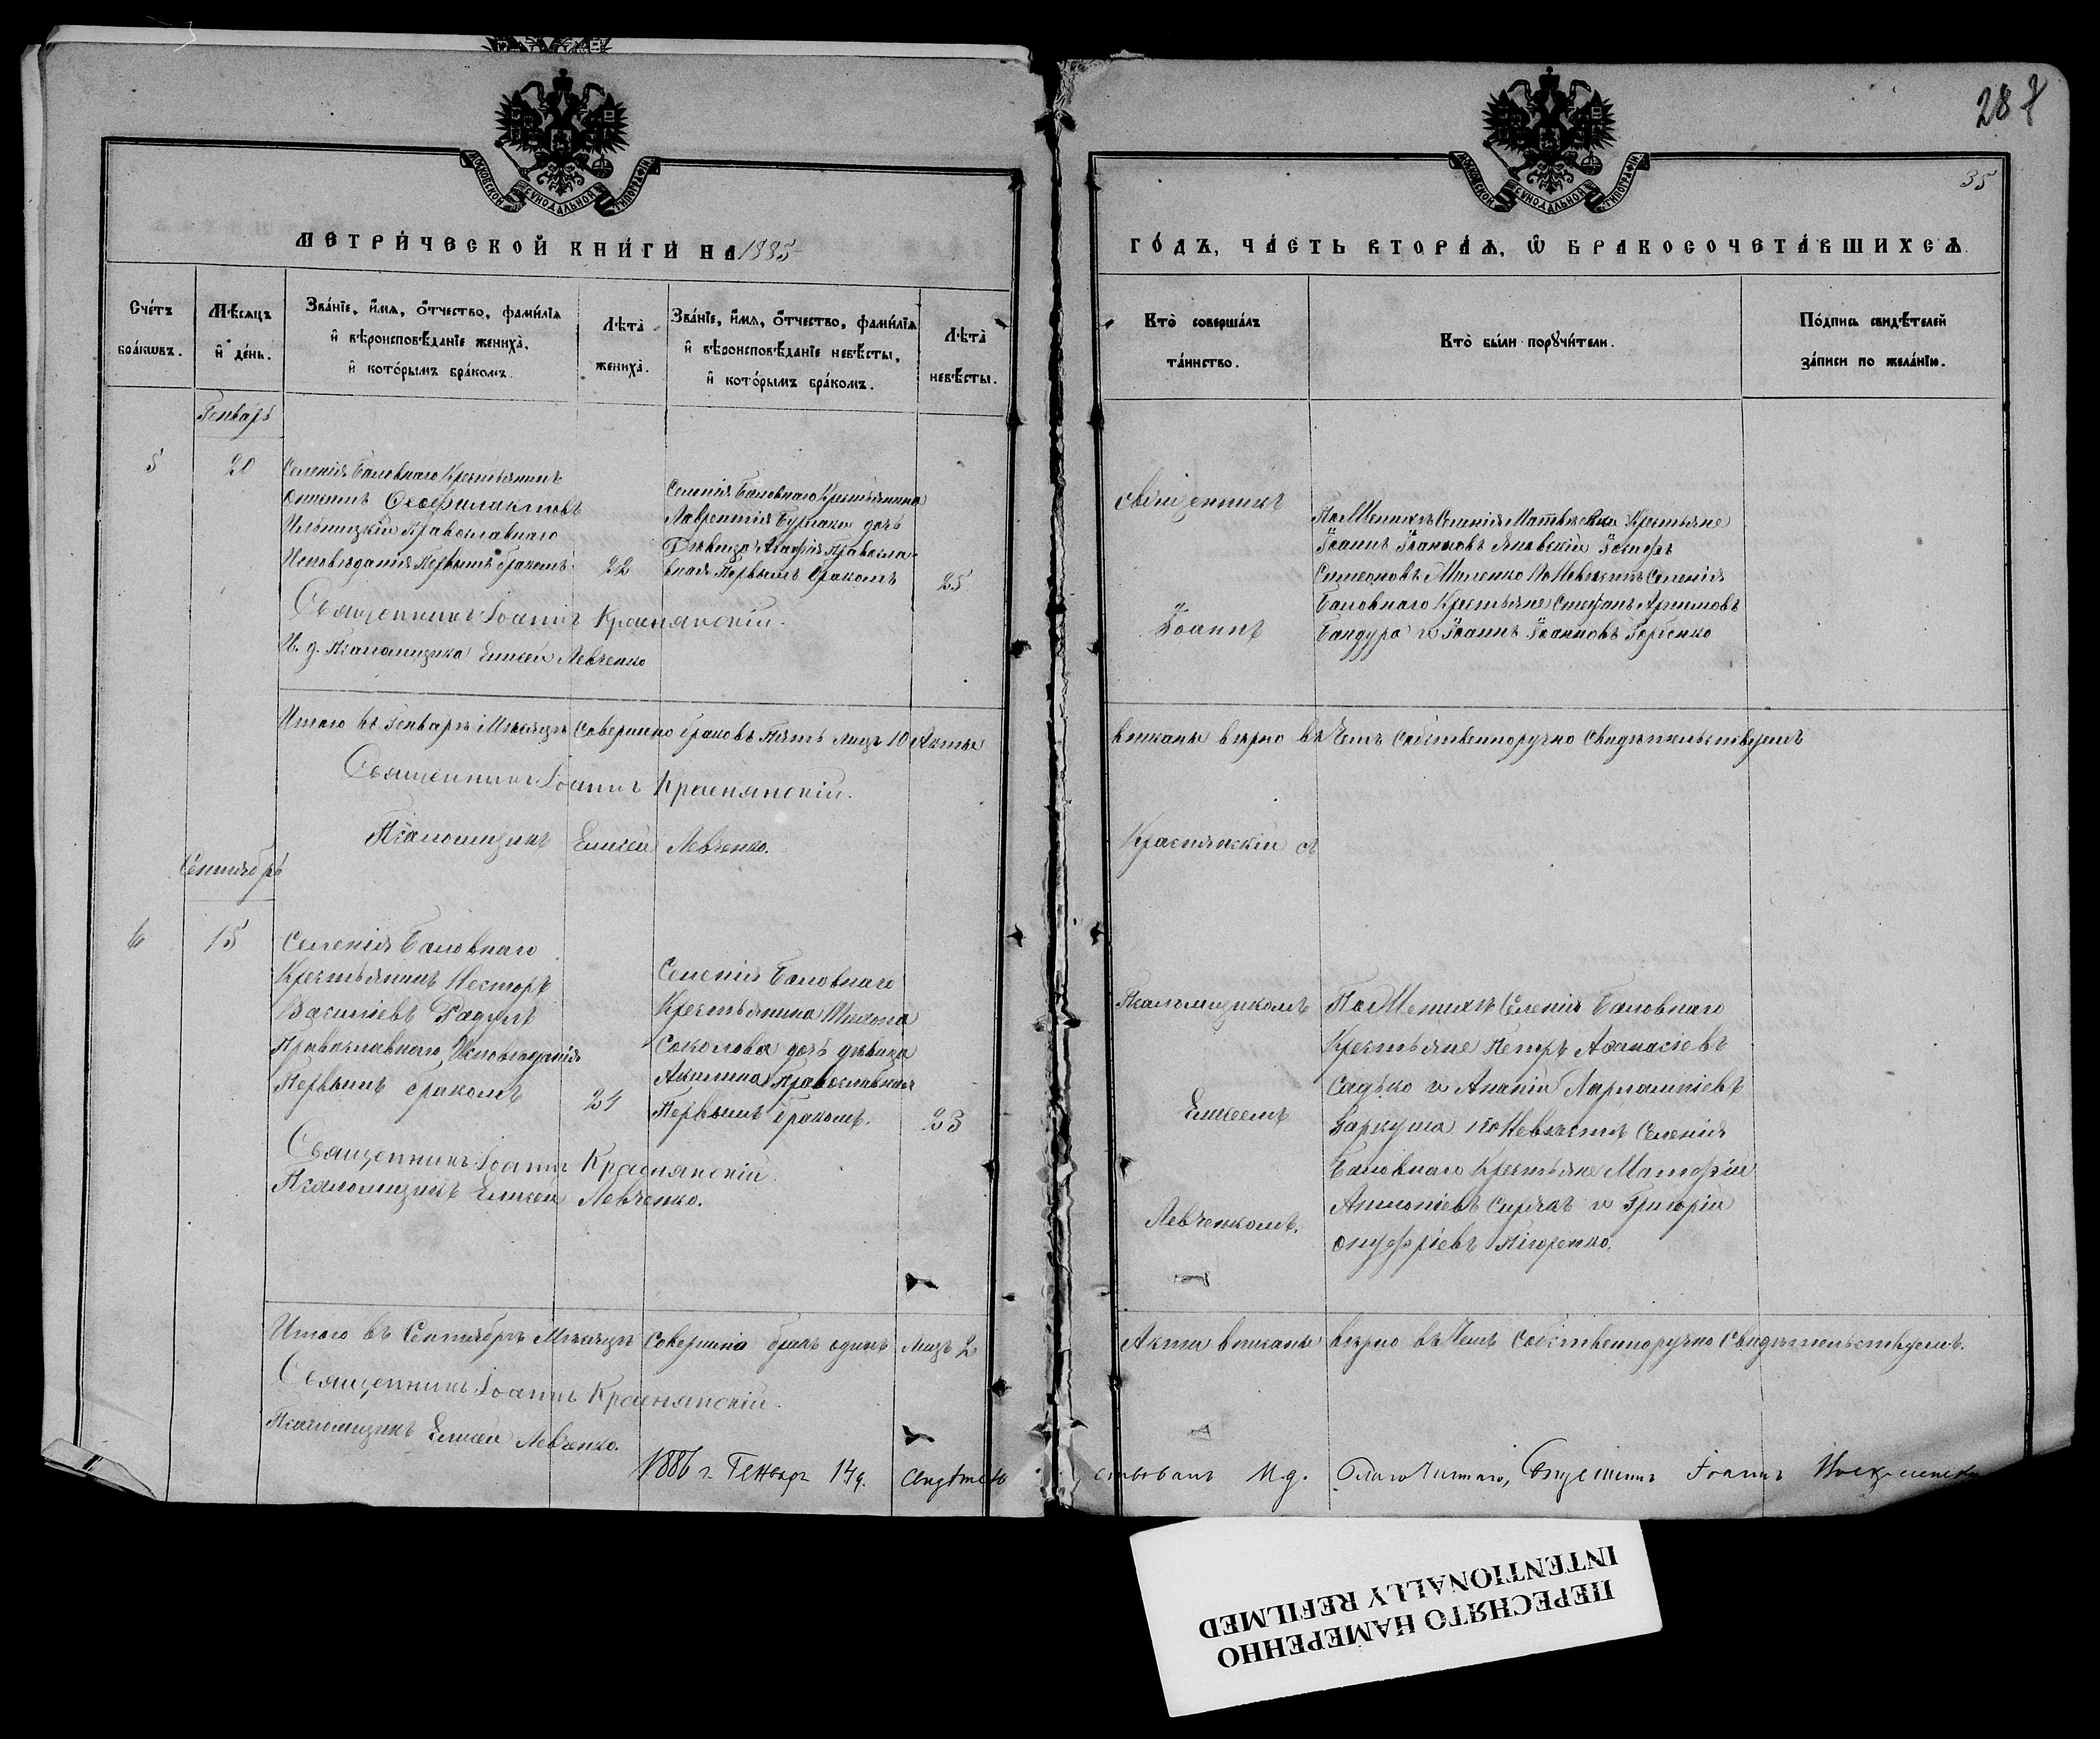 28
35
МОСКОВСКОЙ СѴНОДАЛЬНОЙ ТИПОГРАФІИ
МОСКОВСКОЙ СѴНОДАЛЬНОЙ ТИПОГРАФІИ
МЕТРИ́ЧЕСКОЙ КНИ́ГИ НА 1885
ГО́ДЪ, ЧА́СТЬ ВТОРА́Ѧ, Ѡ БРАКОСОЧЕТА́ВШИХСѦ
Сче́тъ
бра́кѡвъ.
Мѣ́сѧцъ
и҆ де́нь.
Зва́нїе, и҆́мѧ, ѻ҆́тчество, фами́лїѧ
и҆ вѣроисповѣ́данїе жениха̀,
и҆ кото́рымъ бра́комъ.
Лѣ́та̀
жениха̀.
Зва́нїе, и҆́мѧ, ѻ҆́тчество, фами́лїѧ
и҆ вѣроисповѣ́данїе невѣ́сты,
и҆ кото́рымъ бра́комъ.
Лѣ́та̀
невѣ́сты.
Кто̀ соверша́лъ
та́инство.
Кто̀ бы́ли порꙋчи́тели.
По́дпись свидѣ́телей
за́писи по жела́нїю.
Генварь
5
20
Селенія Баловнаго Крестьянинъ
Ѳеофилактовъ
Ильницкій Православнаго
Исповѣданія Первымъ бракомъ
22
Селенія Баловнаго Крестьянина
Лаврентія Бурлаки дочь
Дѣвица Агафія Правосла-
вная Первымъ бракомъ
25
Священникъ
Іоаннъ
Краснянскій съ
По Женихѣ Селенія Матвѣевки Крестьяне
Іоаннъ Іоанновъ Яновскій Іосифъ
Симеоновъ Миленко По Невѣстѣ Селенія
Баловнаго Крестьяне Стефанъ
Бандура и Іоаннъ Іоанновъ Горбенко
Священникъ Іоаннъ Краснянскій.
И. д. Псаломщика Елисей Левченко
Итого въ Генварѣ Мѣсяцѣ Совершено браковъ Пять лицъ 10 Акты
вписаны вѣрно въ Чемъ Собственноручно Свидѣтельствуемъ
Священникъ Іоаннъ Краснянскій.
Псаломщикъ Елисей Левченко.
Сентябрь
6
15
Селенія Баловнаго
Крестьянинъ Несторъ
Василіевъ
Православнаго Исповѣданія
Первымъ бракомъ
24
Селенія Баловнаго
Крестьянина
Соколова дочь дѣвица
Акилина Православная
Первымъ бракомъ.
23
Псаломщикомъ
Елисеемъ
Левченкомъ.
По Женихѣ Селенія Баловнаго
Крестьяне Петръ Аѳанасіевъ
Садько и Ананій
По Невѣстѣ Селенія
Баловнаго Крестьяне Матѳій
Антоніевъ и Григорій
Онуфріевъ
Священникъ Іоаннъ Краснянскій.
Псаломщикъ Елисей Левченко.
Итого въ Сентябрѣ Мѣсяцѣ Совершено бракъ одинъ лицъ 2
Акты вписаны вѣрно въ Чемъ Собственноручно Свидѣтельствуемъ.
Священникъ Іоаннъ Краснянскій.
Псаломщикъ Елисей Левченко.
1886 г. Генвар 14 д. свидѣтель
ствовалъ И.д. Благочиннаго, Священникъ Іоаннъ
ПЕРЕСНЯТО НАМЕРЕННО
INTENTIONALLY REFILMED